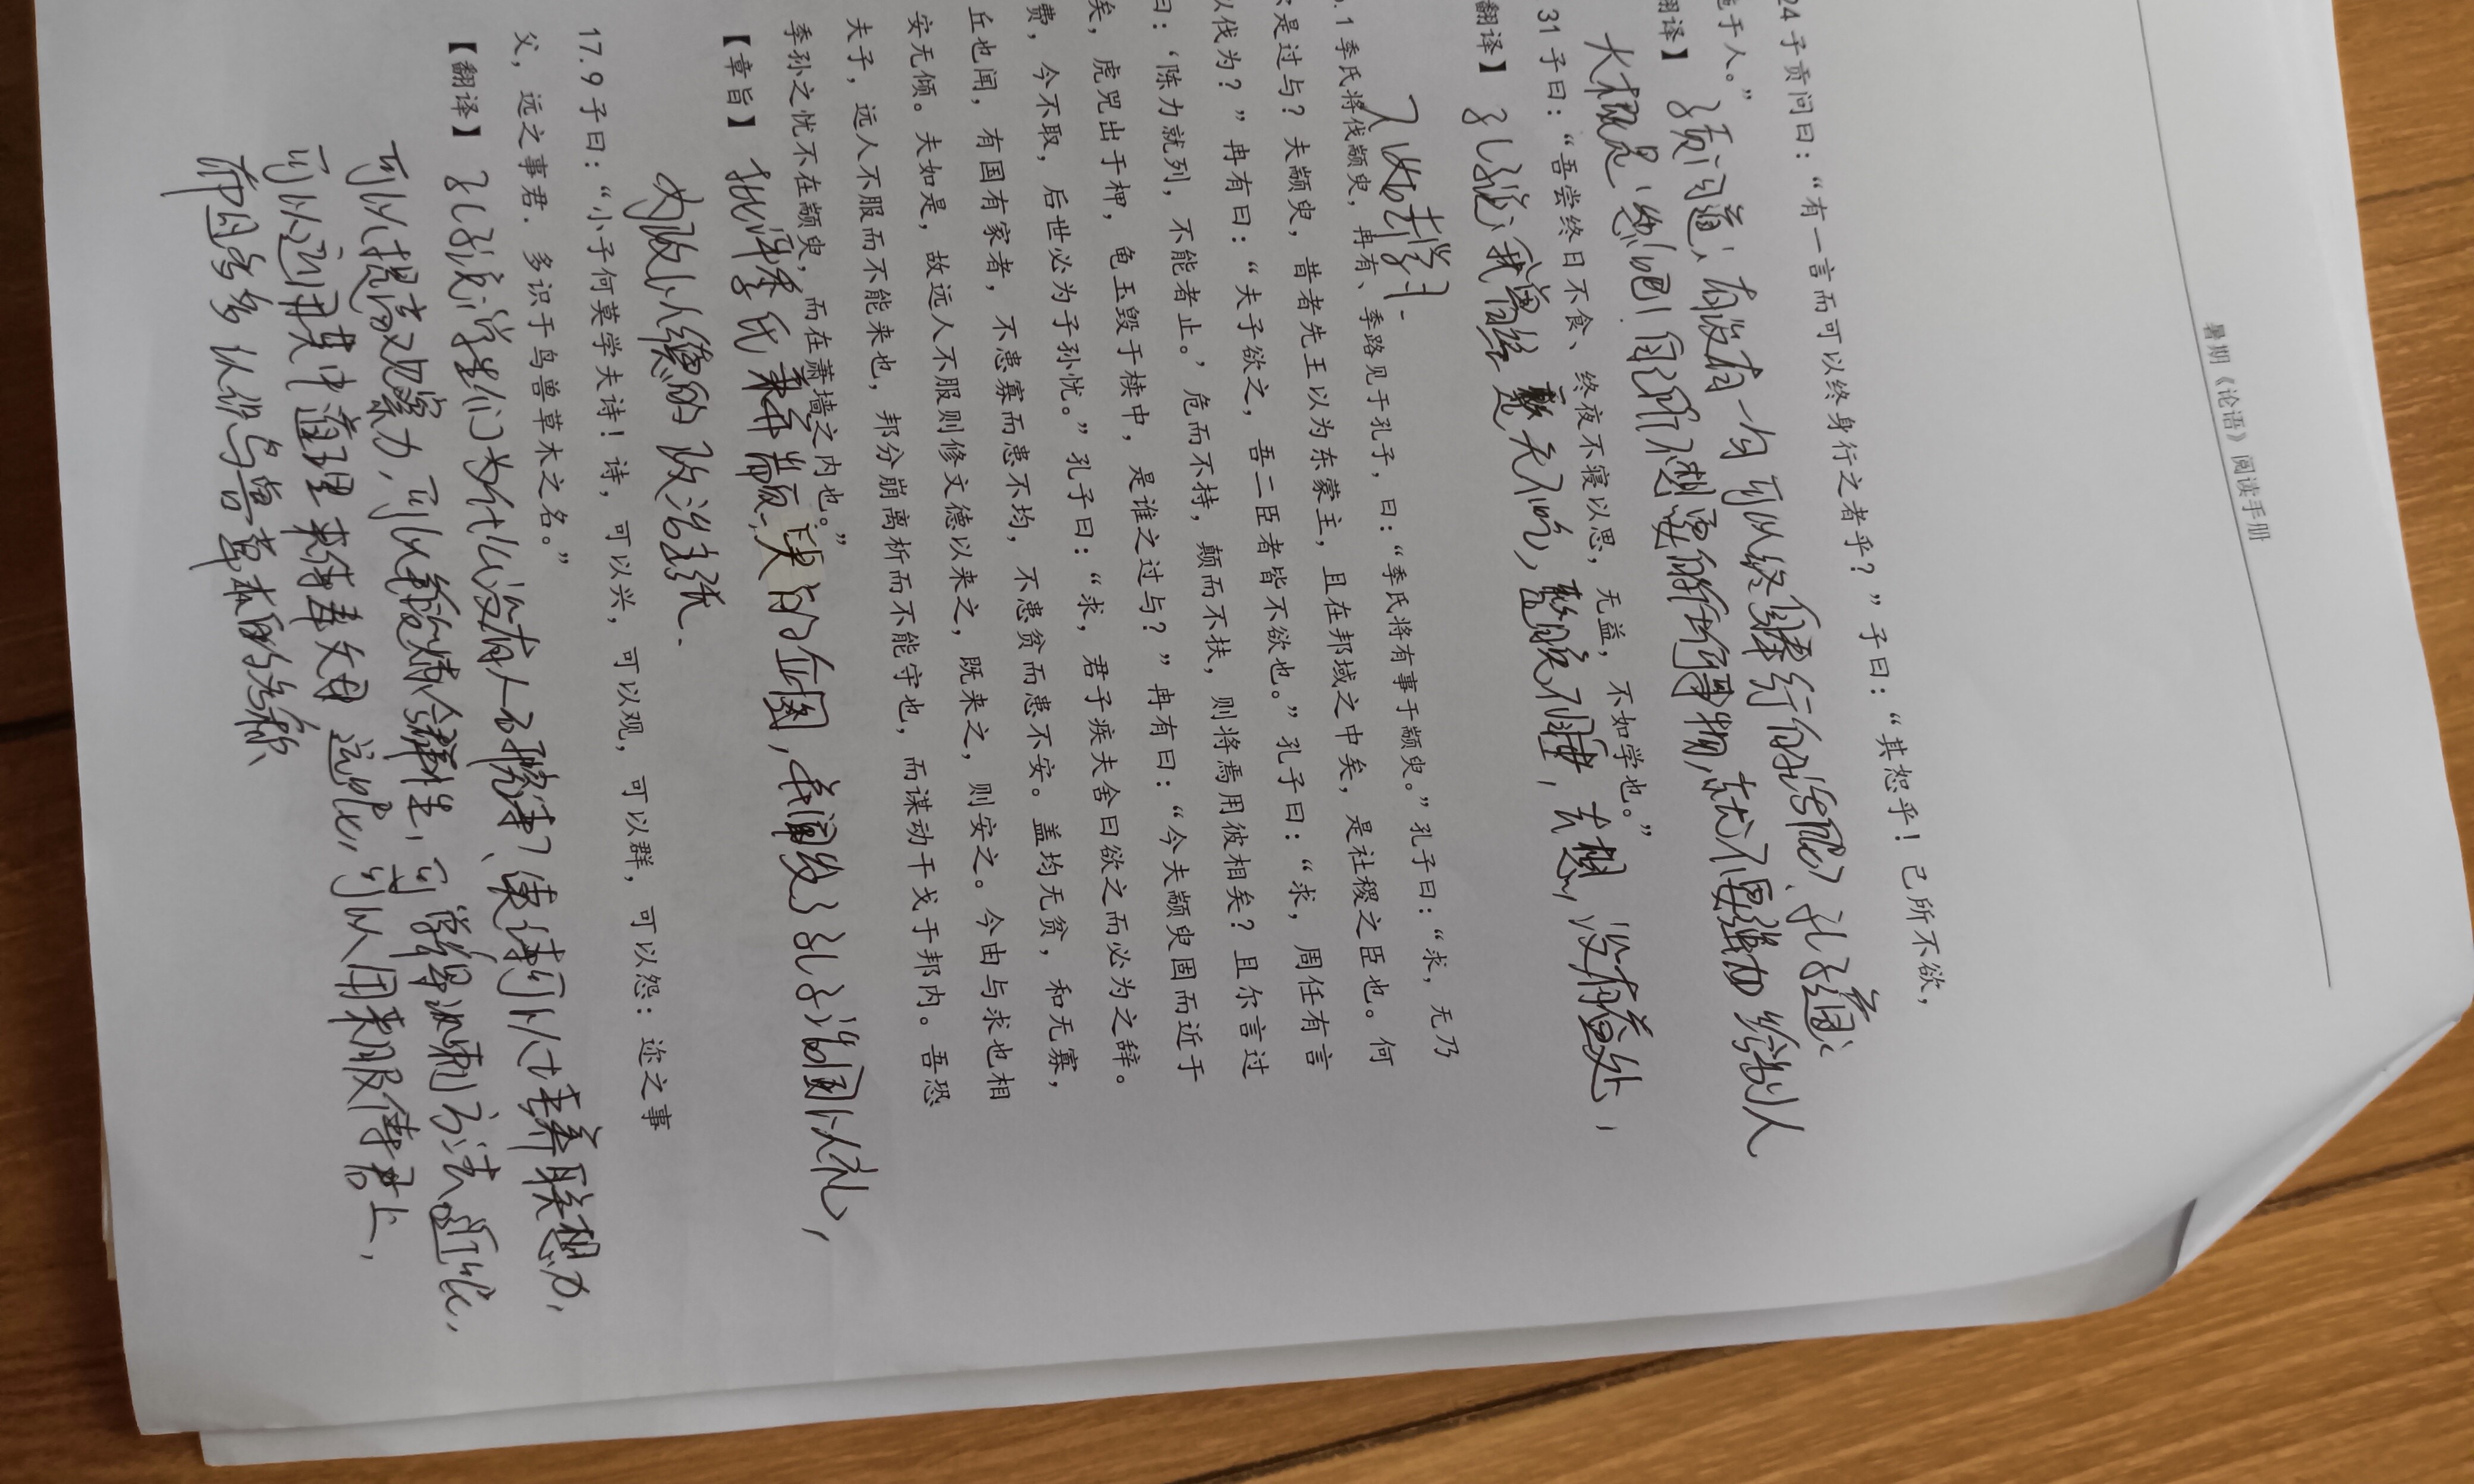 暑期《论语》阅读手册
24 子贡问曰：“有一言而可以终身行之者乎？”子曰：“其恕乎！己所不欲，
施于人。”
翻译】子贡问道：有没有一句可以终身奉行的话呢？孔子道：
大概是‘恕’吧！自己所不想要的任何事物，就不要强加给别人
31 子曰：“吾尝终日不食、终夜不寝以思，无益，不如学也。”
翻译】孔子说：我曾经整天不吃，整晚不睡，去想，没有益处，
不如去学习.
.1 季氏将伐颛臾，冉有、季路见于孔子，曰：“季氏将有事于颛臾。”孔子曰：“求，无乃
是过与？夫颛臾，昔者先王以为东蒙主，且在邦域之中矣，是社稷之臣也。何
以伐为？”冉有曰：“夫子欲之，吾二臣者皆不欲也。”孔子曰：“求，周任有言
曰：‘陈力就列，不能者止。’危而不持，颠而不扶，则将焉用彼相矣？且尔言过
矣，虎兕出于柙，龟玉毁于椟中，是谁之过与？”冉有曰：“今夫颛臾固而近于
费，今不取，后世必为子孙忧。”孔子曰：“求，君子疾夫舍曰欲之而必为之辞。
丘也闻，有国有家者，不患寡而患不均，不患贫而患不安。盖均无贫，和无寡，
安无倾。夫如是，故远人不服则修文德以来之，既来之，则安之。今由与求也相
夫子，远人不服而不能来也，邦分崩离析而不能守也，而谋动干戈于邦内。吾恐
季孙之忧不在颛臾，而在萧墙之内也。”
【章旨】批评季氏兼并颛臾的企图，并阐发了孔子治国以礼，
为政以德的政治主张.
17.9 子曰：“小子何莫学夫诗！诗，可以兴，可以观，可以群，可以怨：迩之事
父，远之事君．多识于鸟兽草木之名。”
【翻译】孔子说：学生们为什么没有人研究诗？读诗可以培养联想力，
可以提高观察力，可以锻炼合群性，可学得讽刺方法。近呢，
可以运用其中道理来侍奉父母 远呢，可以用来服侍君上，
而且多多认识鸟兽草木的名称、